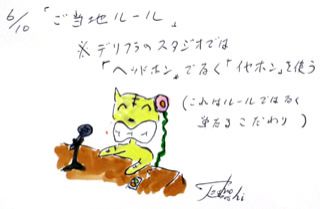 6/10 「ご当地ルール」
※ デリフラのスタジオでは
「ヘッドホン」でなく「イヤホン」を使う
(これはルールではなく
単なるこだわり)